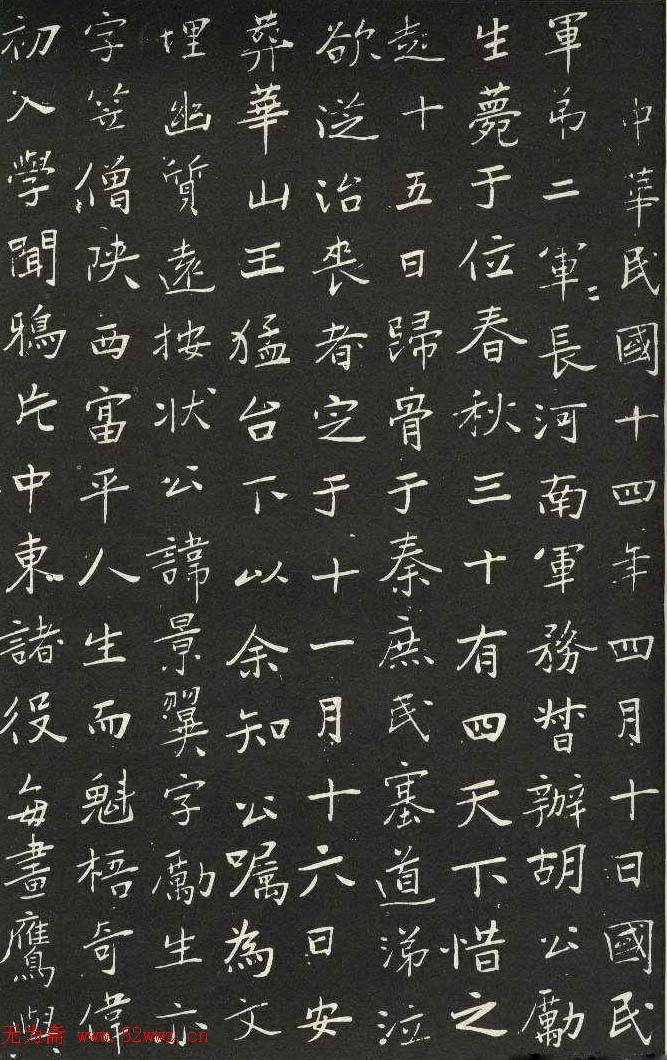 中華民國十四年四月十日國民
軍弟二軍〻長河南軍務督辦胡公勵
生薨于位春秋三十有四天下惜之
越十五日歸骨于秦庶民塞道涕泣
欲從治喪者定于十一月十六日安
葬華山王猛台下以余知公囑為文
埋幽質遠按状公諱景翼字勵生亦
字笠僧陝西富平人生而魁梧奇偉
初入學聞鴉片中東諸役每畫鷹與
无为斋 www.52wwz.cn